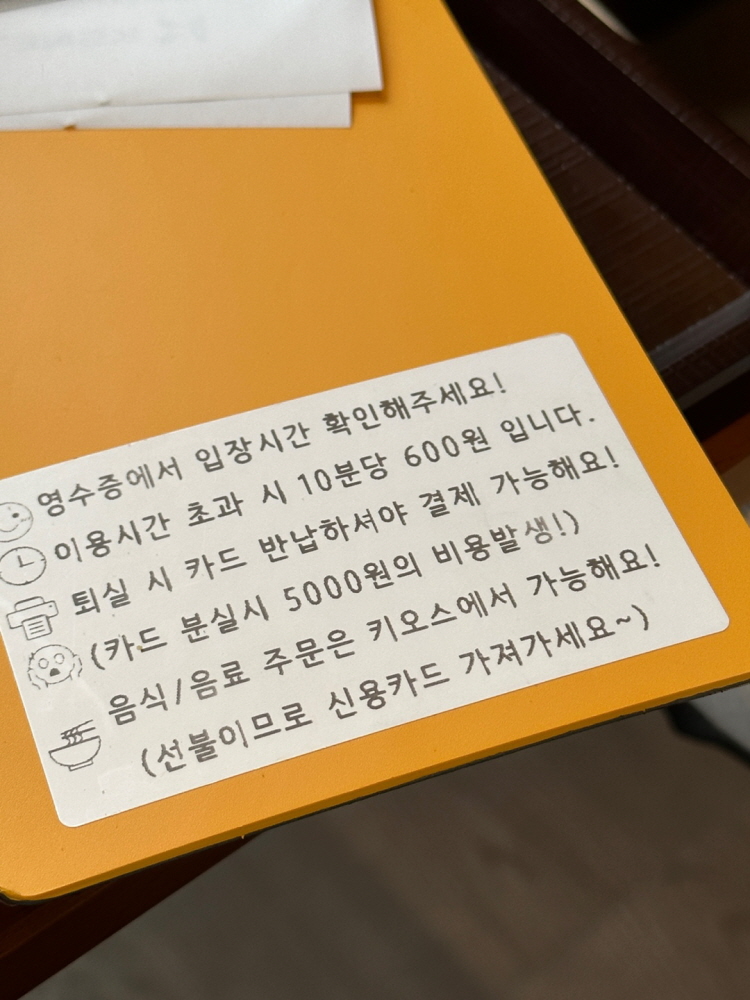 영수증에서 입장시간 확인해주세요!
이용시간 초과 시 10분당 600원 입니다.
퇴실 시 카드 반납하셔야 결제 가능해요!
(카드 분실시 5000원의 비용발생!)
음식/음료 주문은 키오스에서 가능해요!
(선불이므로 신용카드 가져가세요~)